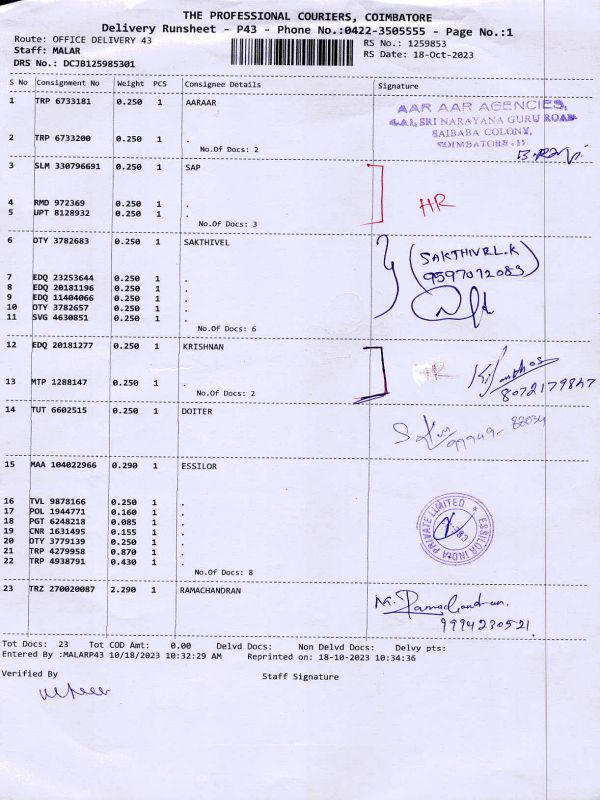 THE PROFESSIONAL COURIERS, COIMBATORE
Delivery Runsheet - P43 - Phone No.:0422-3505555 - Page No.:1
Route: OFFICE DELIVERY 43 RS No.: 1259853
Staff: MALAR RS Date: 18-Oct-2023
DRS No.: DCJB125985301
S No Consignment No Weight PCS Consignee Details Signature
1 TRP 6733181 0.250 1 AARAAR
AAR AAR AGENCIES,
SRI NARAYANA GURU ROAD
SAIBABA COLONY,
COIMBATORE - 11
2 TRP 6733200 0.250 1 .
No.Of Docs: 2
3 SLM 330796691 0.250 1 SAP
HR
4 RMD 972369 0.250 1 .
5 UPT 8128932 0.250 1 .
No.Of Docs: 3
6 DTY 3782683 0.250 1 SAKTHIVEL
SAKTHIVEL.K
9597072083
7 EDQ 23253644 0.250 1 .
8 EDQ 20181196 0.250 1 .
9 EDQ 11404066 0.250 1 .
10 DTY 3782657 0.250 1 .
11 SVG 4630851 0.250 1 .
No.Of Docs: 6
12 EDQ 20181277 0.250 1 KRISHNAN
HR
8072179847
13 MTP 1288147 0.250 1 .
No.Of Docs: 2
14 TUT 6602515 0.250 1 DOITER
15 MAA 104022966 0.290 1 ESSILOR
16 TVL 9878166 0.250 1 .
17 POL 1944771 0.160 1 .
18 PGT 6248218 0.085 1 .
19 CNR 1631495 0.155 1 .
20 DTY 3779139 0.250 1 .
21 TRP 4279958 0.870 1 .
22 TRP 4938791 0.430 1 .
No.Of Docs: 8
ESSILOR INDIA PRIVATE LIMITED
23 TRZ 270020087 2.290 1 RAMACHANDRAN
M. Ramachandran.
9994230521
Tot Docs: 23 Tot COD Amt: 0.00 Delvd Docs: Non Delvd Docs: Delvy pts:
Entered By :MALARP43 10/18/2023 10:32:29 AM Reprinted on: 18-10-2023 10:34:36
Verified By Staff Signature